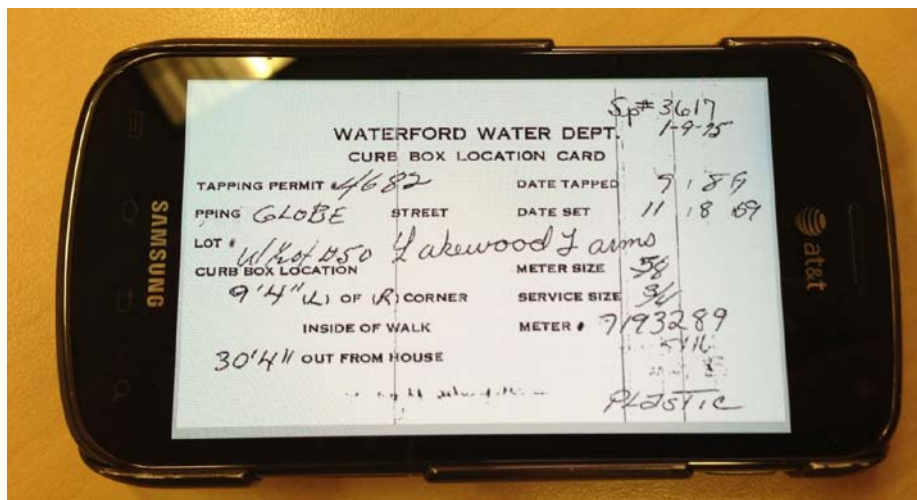 Sp# 3617
WATERFORD WATER DEPT. 1-9-75
CURB BOX LOCATION CARD
TAPPING PERMIT # 4682 DATE TAPPED 9 18 59
PPING GLOBE STREET DATE SET 11 18 59
LOT # Lakewood Farms
CURB BOX LOCATION METER SIZE 5/8
9'4" (L) OF (R) CORNER SERVICE SIZE 3/4
INSIDE OF WALK METER # 7193289
30'4" OUT FROM HOUSE
PLASTIC
SAMSUNG
at&t